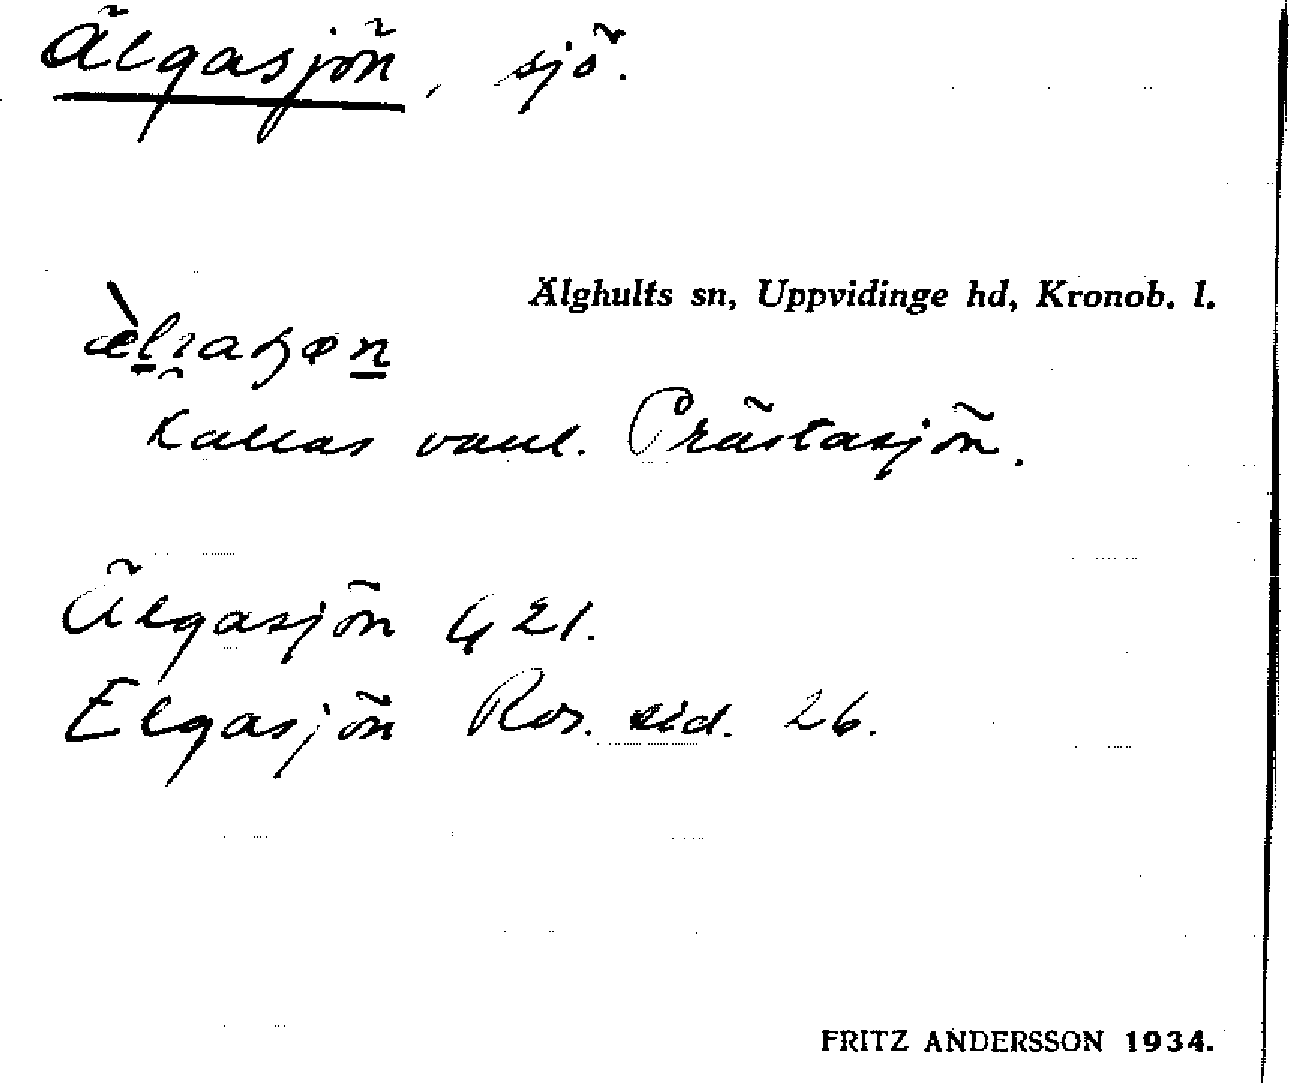 Älgasjön, sjö.
Älghults sn, Uppvidinge hd, Kronob. l.
kallas vanl. Prästasjön.
Älgasjön G 21.
Elgasjön Ros. sid. 26.
FRITZ ANDERSSON 1934.